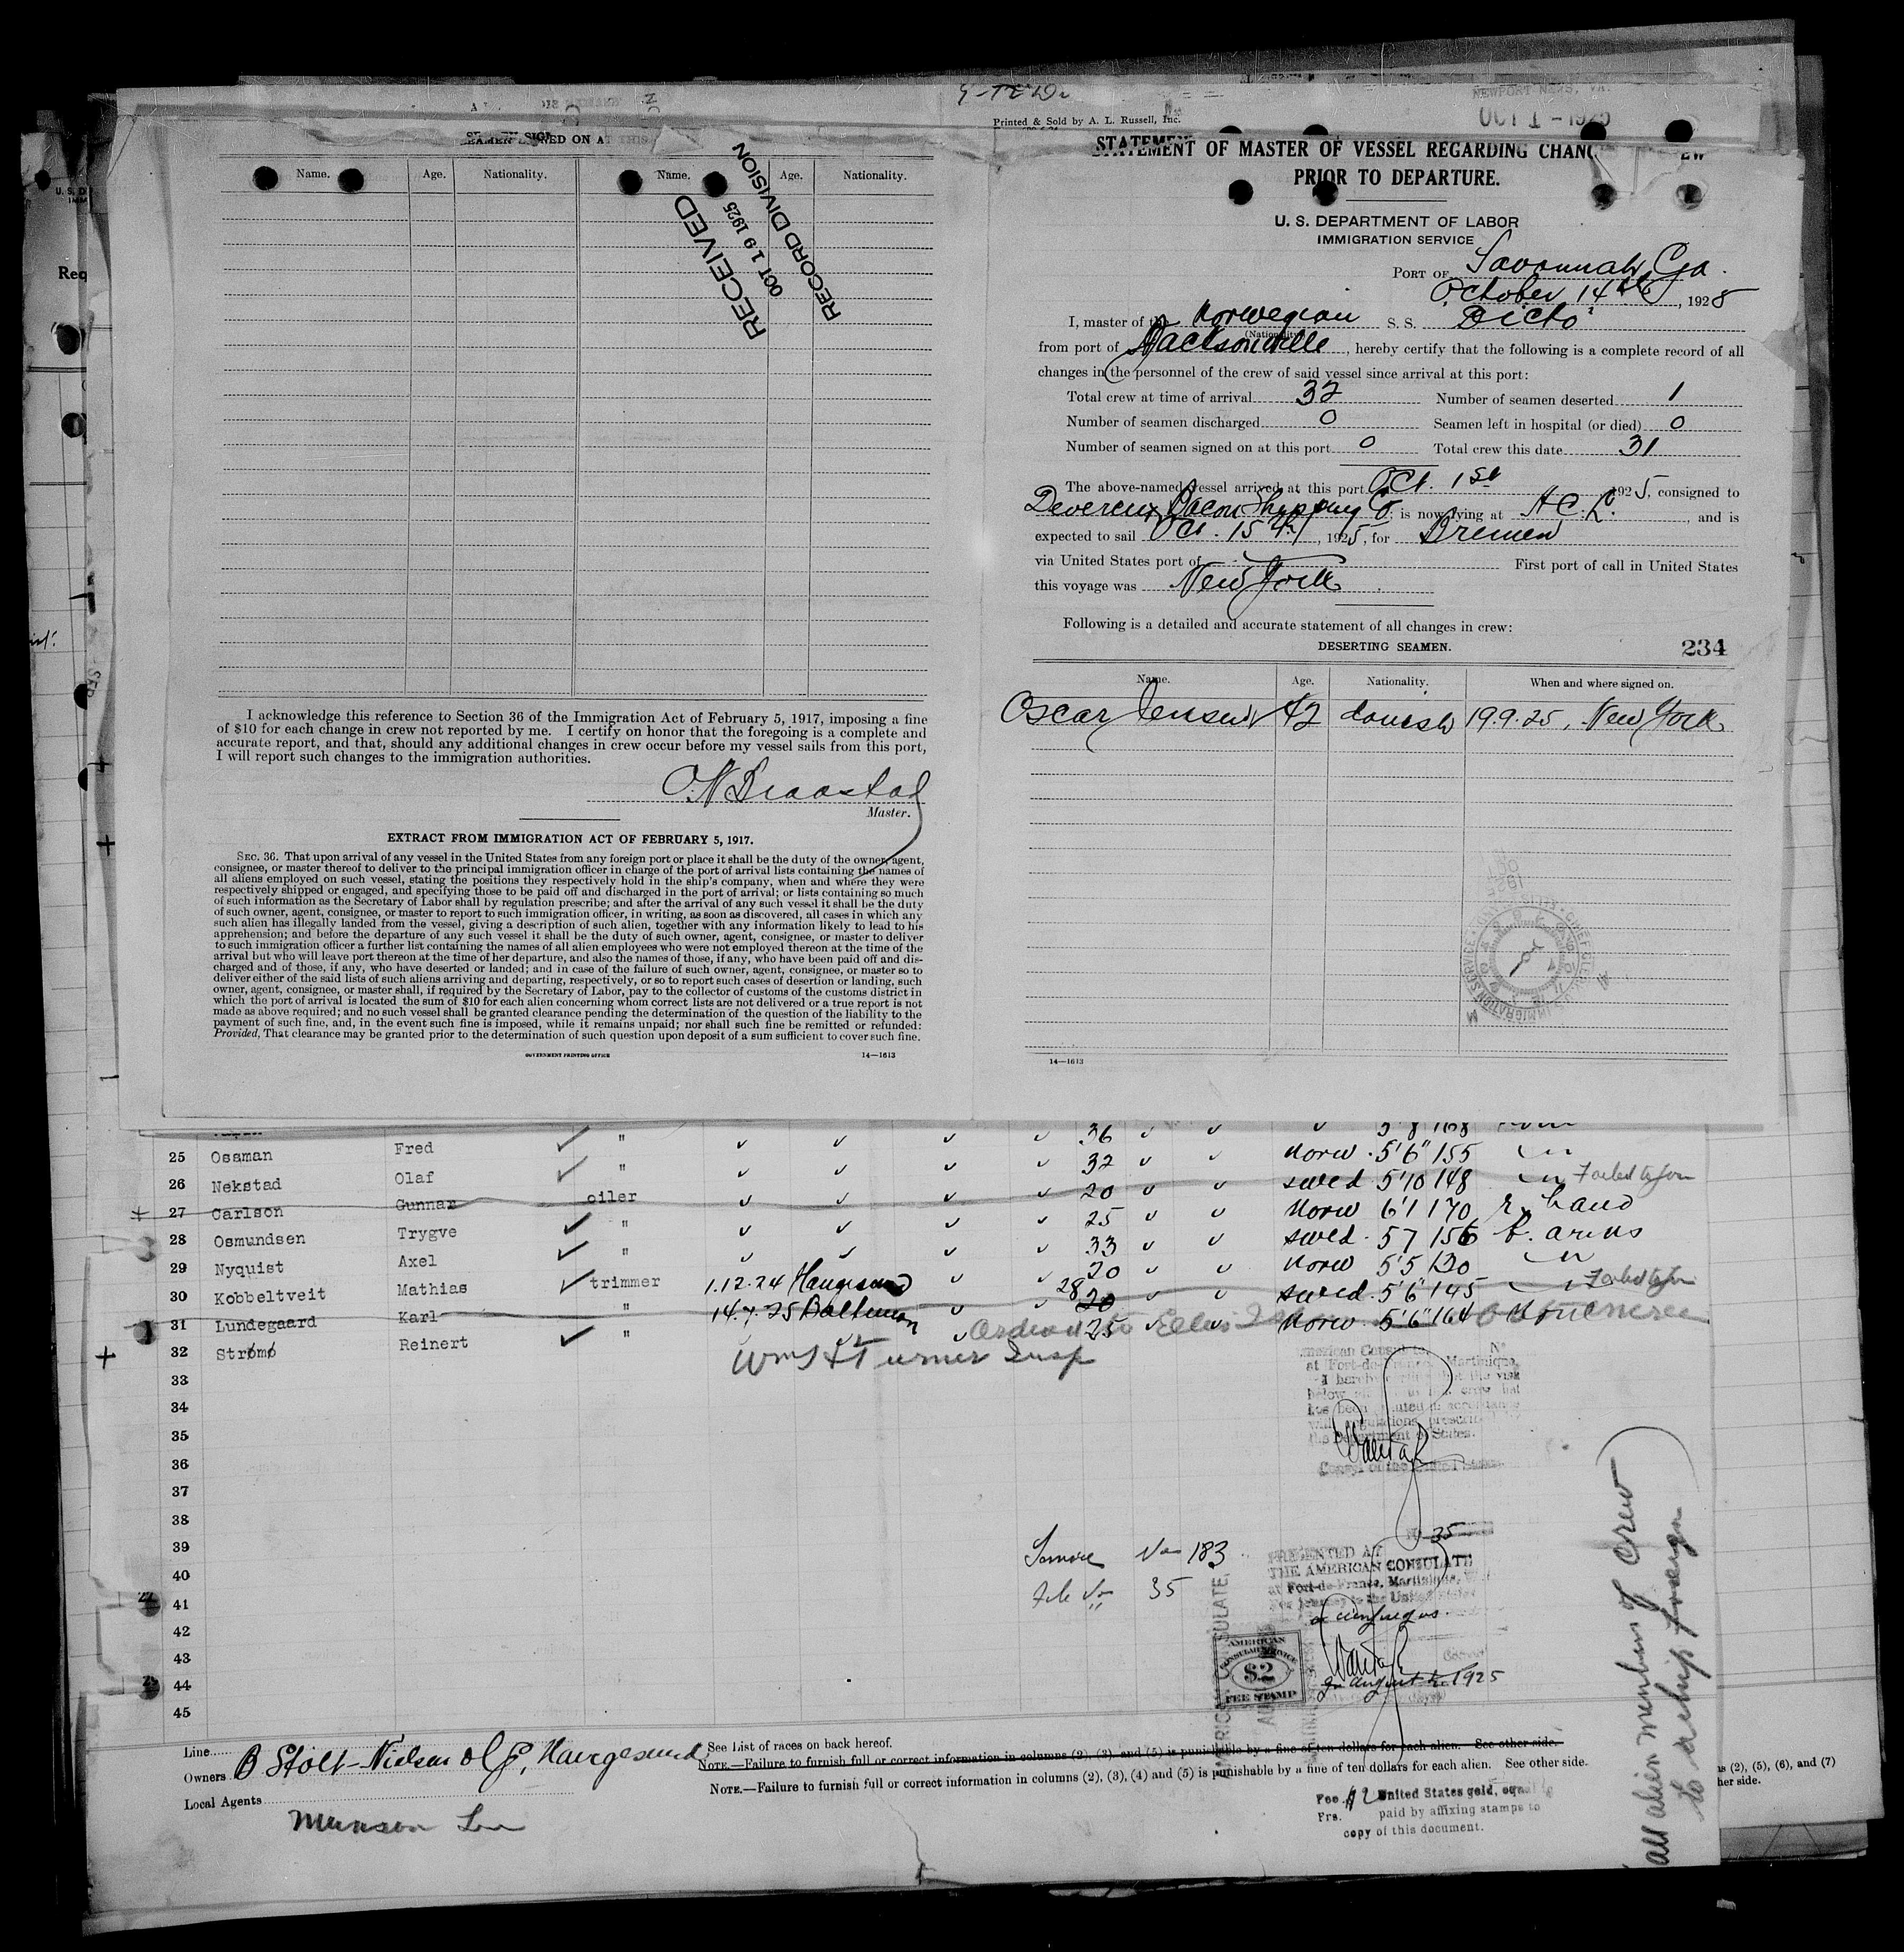 Printed & Sold by A. L. Russell, Inc.
NEWPORT NEWS, VA.
OCT 1 - 1925
SEAMEN SIGNED ON AT THIS
Name. Age. Nationality. Name. Age. Nationality.
RECEIVED
OCT 19 1925
RECORD DIVISION
I acknowledge this reference to Section 36 of the Immigration Act of February 5, 1917, imposing a fine
of $10 for each change in crew not reported by me. I certify on honor that the foregoing is a complete and
accurate report, and that, should any additional changes in crew occur before my vessel sails from this port,
I will report such changes to the immigration authorities.
O.N. Braastad
Master.
EXTRACT FROM IMMIGRATION ACT OF FEBRUARY 5, 1917.
SEC. 36. That upon arrival of any vessel in the United States from any foreign port or place it shall be the duty of the owner, agent,
consignee, or master thereof to deliver to the principal immigration officer in charge of the port of arrival lists containing the names of
all aliens employed on such vessel, stating the positions they respectively hold in the ship's company, when and where they were
respectively shipped or engaged, and specifying those to be paid off and discharged in the port of arrival; or lists containing so much
of such information as the Secretary of Labor shall by regulation prescribe; and after the arrival of any such vessel it shall be the duty
of such owner, agent, consignee, or master to report to such immigration officer, in writing, as soon as discovered, all cases in which any
such alien has illegally landed from the vessel, giving a description of such alien, together with any information likely to lead to his
apprehension; and before the departure of any such vessel it shall be the duty of such owner, agent, consignee, or master to deliver
to such immigration officer a further list containing the names of all alien employees who were not employed thereon at the time of the
arrival but who will leave port thereon at the time of her departure, and also the names of those, if any, who have been paid off and dis-
charged and of those, if any, who have deserted or landed; and in case of the failure of such owner, agent, consignee, or master so to
deliver either of the said lists of such aliens arriving and departing, respectively, or so to report such cases of desertion or landing, such
owner, agent, consignee, or master shall, if required by the Secretary of Labor, pay to the collector of customs of the customs district in
which the port of arrival is located the sum of $10 for each alien concerning whom correct lists are not delivered or a true report is not
made as above required; and no such vessel shall be granted clearance pending the determination of the question of the liability to the
payment of such fine, and, in the event such fine is imposed, while it remains unpaid; nor shall such fine be remitted or refunded:
Provided, That clearance may be granted prior to the determination of such question upon deposit of a sum sufficient to cover such fine.
GOVERNMENT PRINTING OFFICE 14—1613
STATEMENT OF MASTER OF VESSEL REGARDING CHANG EW
PRIOR TO DEPARTURE.
U. S. DEPARTMENT OF LABOR
IMMIGRATION SERVICE
PORT OF Savannah, Ga.
October 14th, 1925
I, master of the Norwegian S. S. Dicto
(Nationality)
from port of Jacksonville, hereby certify that the following is a complete record of all
changes in the personnel of the crew of said vessel since arrival at this port:
Total crew at time of arrival 32 Number of seamen deserted 1
Number of seamen discharged 0 Seamen left in hospital (or died) 0
Number of seamen signed on at this port 0 Total crew this date 31
The above-named vessel arrived at this port Oct. 1st 1925, consigned to
Devereux Bacon Shipping Co. is now lying at A C. L., and is
expected to sail Oct. 15th, 1925, for Bremen
via United States port of First port of call in United States
this voyage was New York
Following is a detailed and accurate statement of all changes in crew:
DESERTING SEAMEN. 234
Name. Age. Nationality. When and where signed on.
Oscar Jensen 42 danish 19.9.25, New York
14—1613
Fred " 36 5'8 168
25 Osaman Olaf " 32 Norw. 5'6" 155
26 Nekstad Gunnar oiler 20 swed 5'10 148
27 Carlson Trygve " 25 Norw 6'1 170 r. hand
28 Osmundsen Axel " 33 swed. 5 7 156 t. arms
29 Nyquist Mathias trimmer 1.12.24 Haugesund 20 Norw 5'5 130
30 Kobbeltveit Karl " 14.7.25 Baltimore 28 20 swed. 5'6" 145
31 Lundegaard Reinert " 25 Norw 5'6" 164
32 Strømø
Wm S Turner Insp
33
34
35
36
37
38
39
40
41
42
43
44
45
American Consulate
at Fort-de-France, Martinique,
Service No 183
File No 35
No 35
PRESENTED AT
THE AMERICAN CONSULATE
at Fort-de-France, Martinique,
AMERICAN
CONSULAR SERVICE
$2
FEE STAMP
August 1925
all alien members of crew
to reship foreign
Line
Owners B Stolt-Nielsen Haugesund
Local Agents
Munson Line
See List of races on back hereof.
NOTE.—Failure to furnish full or correct information in columns (2), (3), and (5) is punishable by a fine of ten dollars for each alien. See other side.
NOTE.—Failure to furnish full or correct information in columns (2), (3), (4) and (5) is punishable by a fine of ten dollars for each alien. See other side.
Fee $2 United States gold, equal to
Frs. paid by affixing stamps to
copy of this document.
s (2), (5), (6), and (7)
her side.